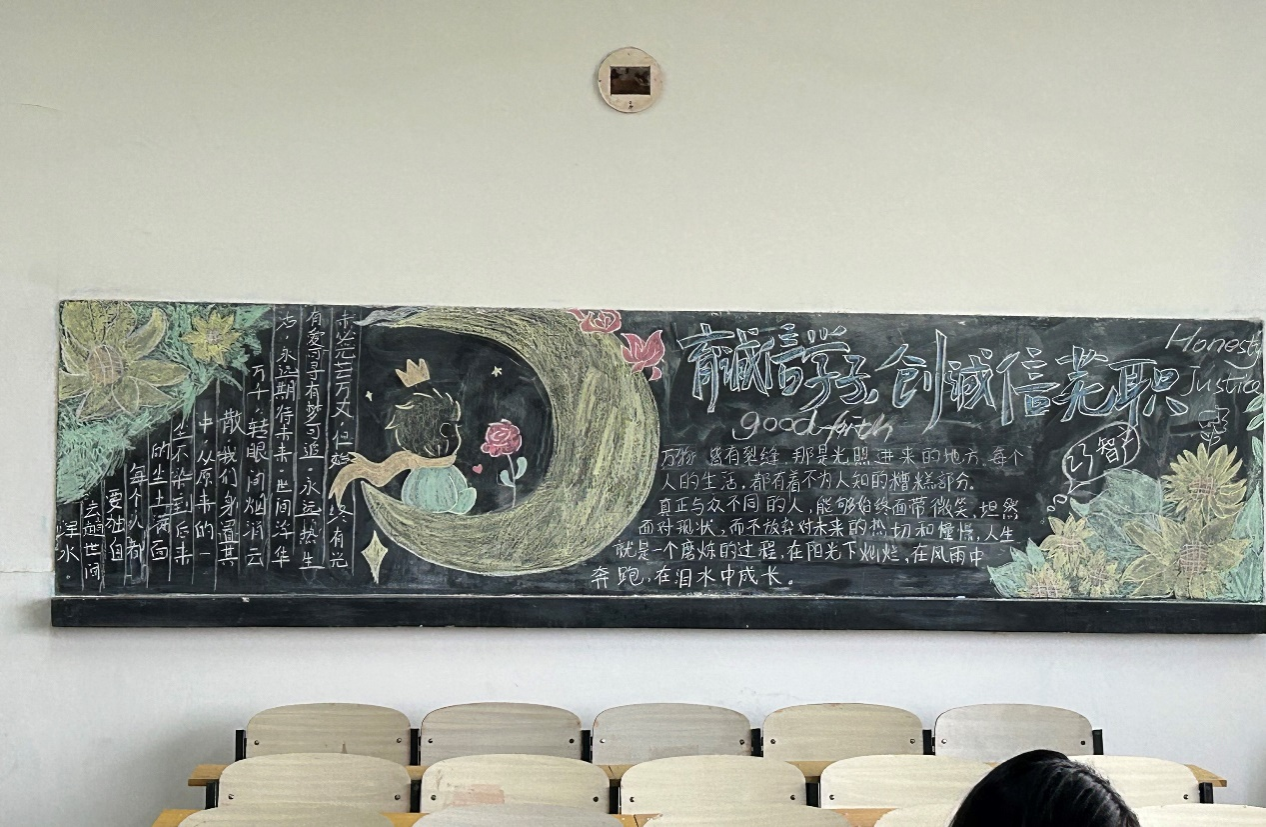 育诚信学子,创诚信芜职
Honesty
Justice
good faith
巧智
万物 皆有裂缝 那是光照 进来的地方,每个
人的生活,都有着不为人知的糟糕部分。
真正与众不同的人,能够始终面带微笑,坦然
面对现状,而不放弃对未来的热切和憧憬,人生
就是一个磨炼的过程,在阳光下灿烂,在风雨中
奔跑,在泪水中成长。
未必光芒万丈,但始终有光
有爱可寻有梦可追,永远热
永远期待未来,世间浮华
万千,转眼间烟消云
散,我们身置其
中,从原来的一
尘不染到后来
的尘土满面
每个人都
要独自
去趟世间
浑水。